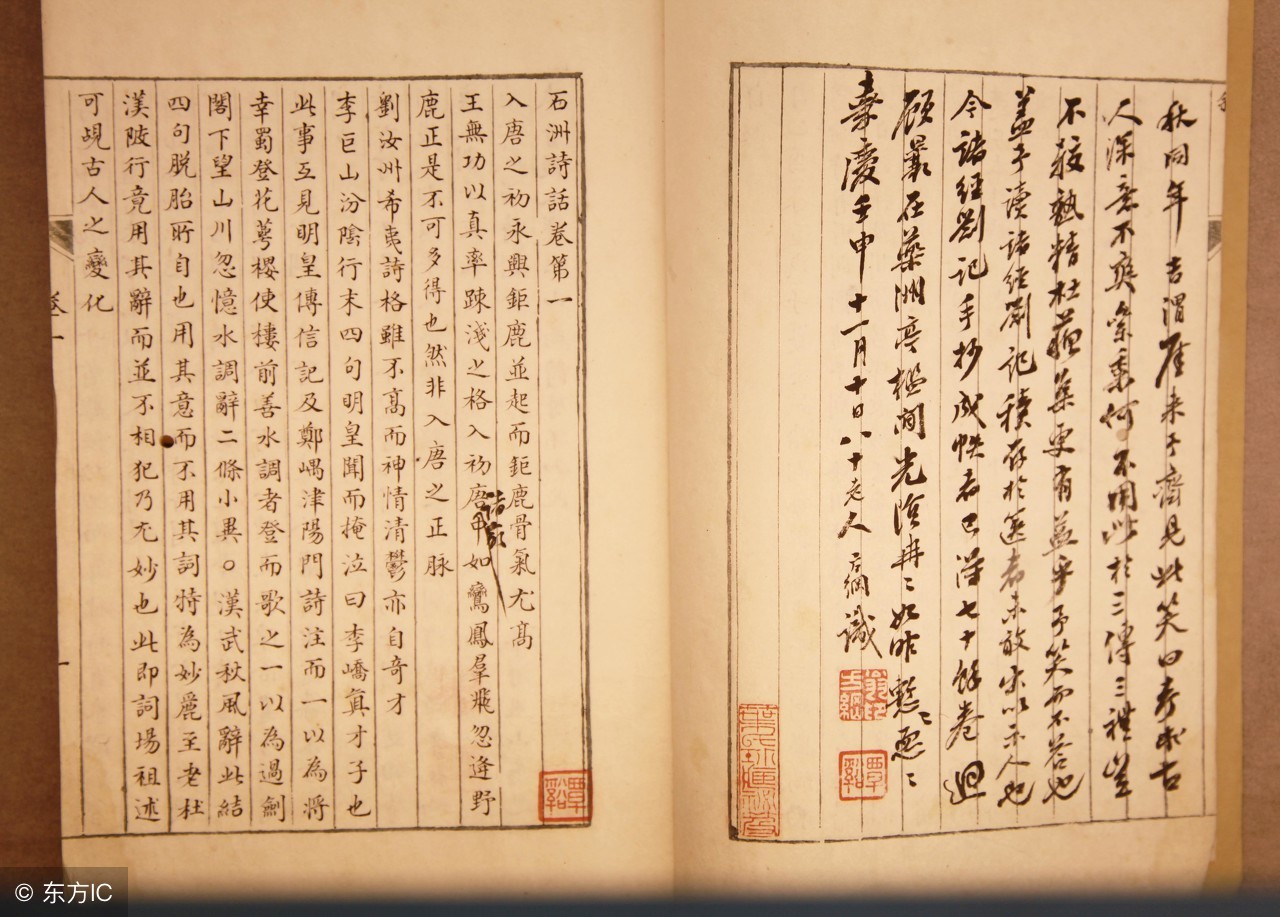 秋同年 吉渭厓來予齋見此笑曰考訂古
人深意不爽累黍何不用此於三傳三禮豈
不較熟精杜蘇集更有益乎予笑而不答也
蓋予讀諸經劄記積存於篋者未敢出以示人也
今諸經劄記手抄成帙者已得七十餘卷迴
顧曩在藥洲亭檻間光陰冉冉如昨慙慙恧恧
嘉慶壬申十一月十日八十老人方綱識
翁方綱印
覃谿
石洲詩話卷第一
入唐之初永興鉅鹿並起而鉅鹿骨氣尤高
王無功以真率疎淺之格入初唐諸家中如鸞鳳羣飛忽逢野
鹿正是不可多得也然非入唐之正脉
劉汝州希夷詩格雖不高而神情清鬱亦自奇才
李巨山汾陰行末四句明皇聞而掩泣曰李嶠真才子也
此事互見明皇傳信記及鄭嵎津陽門詩注而一以為將
幸蜀登花萼樓使樓前善水調者登而歌之一以為過劍
閣下望山川忽憶水調辭二條小異○漢武秋風辭此結
四句脱胎所自也用其意而不用其詞特為妙麗至老杜
渼陂行竟用其辭而並不相犯乃尤妙也此即詞場祖述
可覘古人之變化
覃谿
卷一
一
© 东方IC